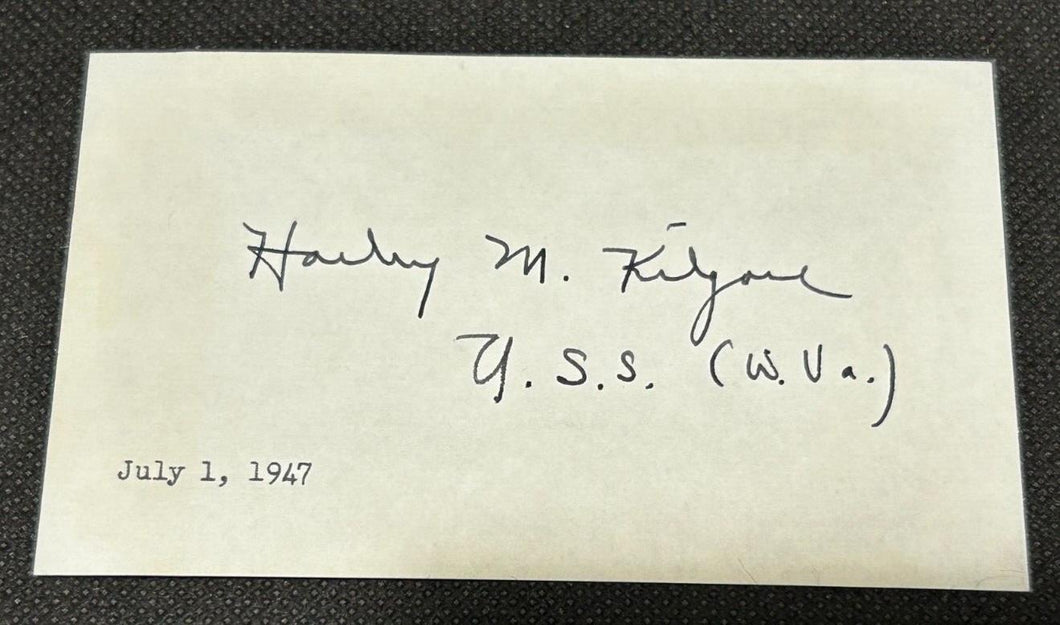 Harley M. Kilgore
U.S.S. (W.Va.)
July 1, 1947